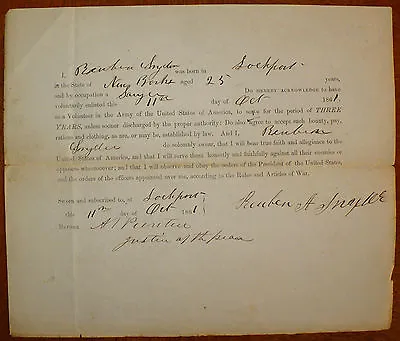 I, Reuben Snyder was born in Lockport
in the State of New York aged 25 years,
and by occupation a Do HEREBY ACKNOWLEDGE to have
voluntarily enlisted this 11th day of Oct 1861,
as a Volunteer in the Army of the United States of America, to serve for the period of THREE
YEARS, unless sooner discharged by the proper authority: Do also agree to accept such bounty, pay,
rations and clothing, as are, or may be, established by law. And I, Reuben
Snyder do solemnly swear, that I will bear true faith and allegiance to the
United States of America, and that I will serve them honestly and faithfully against all their enemies or
opposers whomsoever; and that I will observe and obey the orders of the President of the United States,
and the orders of the officers appointed over me, according to the Rules and Articles of War.
Sworn and subscribed to, at Lockport
this 11th day of Oct 1861
Reuben A Snyder
BEFORE A
Justice of the peace